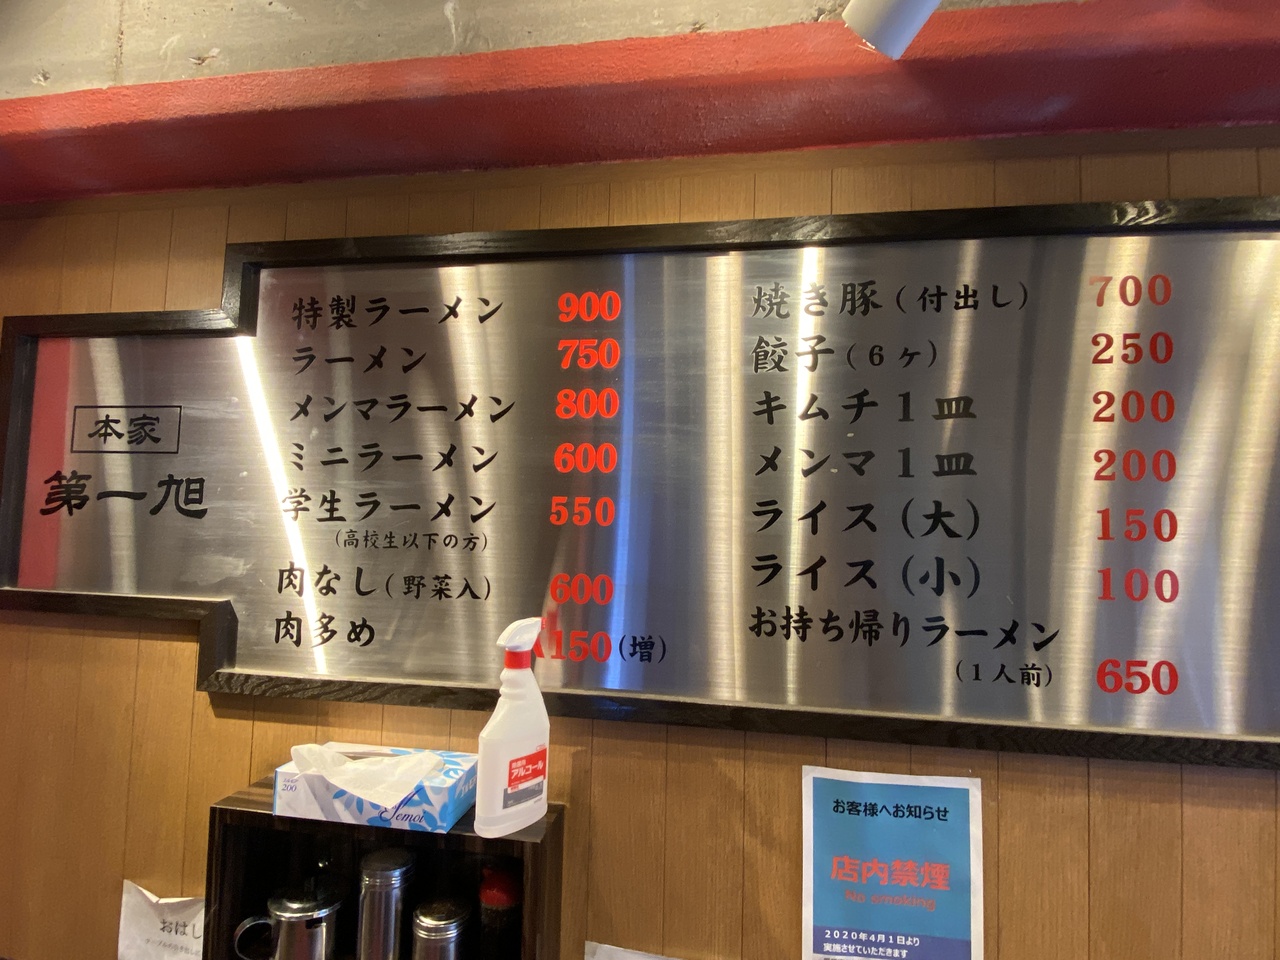 本家
第一旭
特製ラーメン 900
ラーメン 750
メンマラーメン 800
ミニラーメン 600
学生ラーメン 550
(高校生以下の方)
肉なし(野菜入) 600
肉多め 150(増)
焼き豚(付出し) 700
餃子(6ヶ) 250
キムチ1皿 200
メンマ1皿 200
ライス(大) 150
ライス(小) 100
お持ち帰りラーメン
(1人前) 650
アルコール
200
お客様へお知らせ
店内禁煙
No smoking
2020年4月1日より
実施させていただきます
おはし